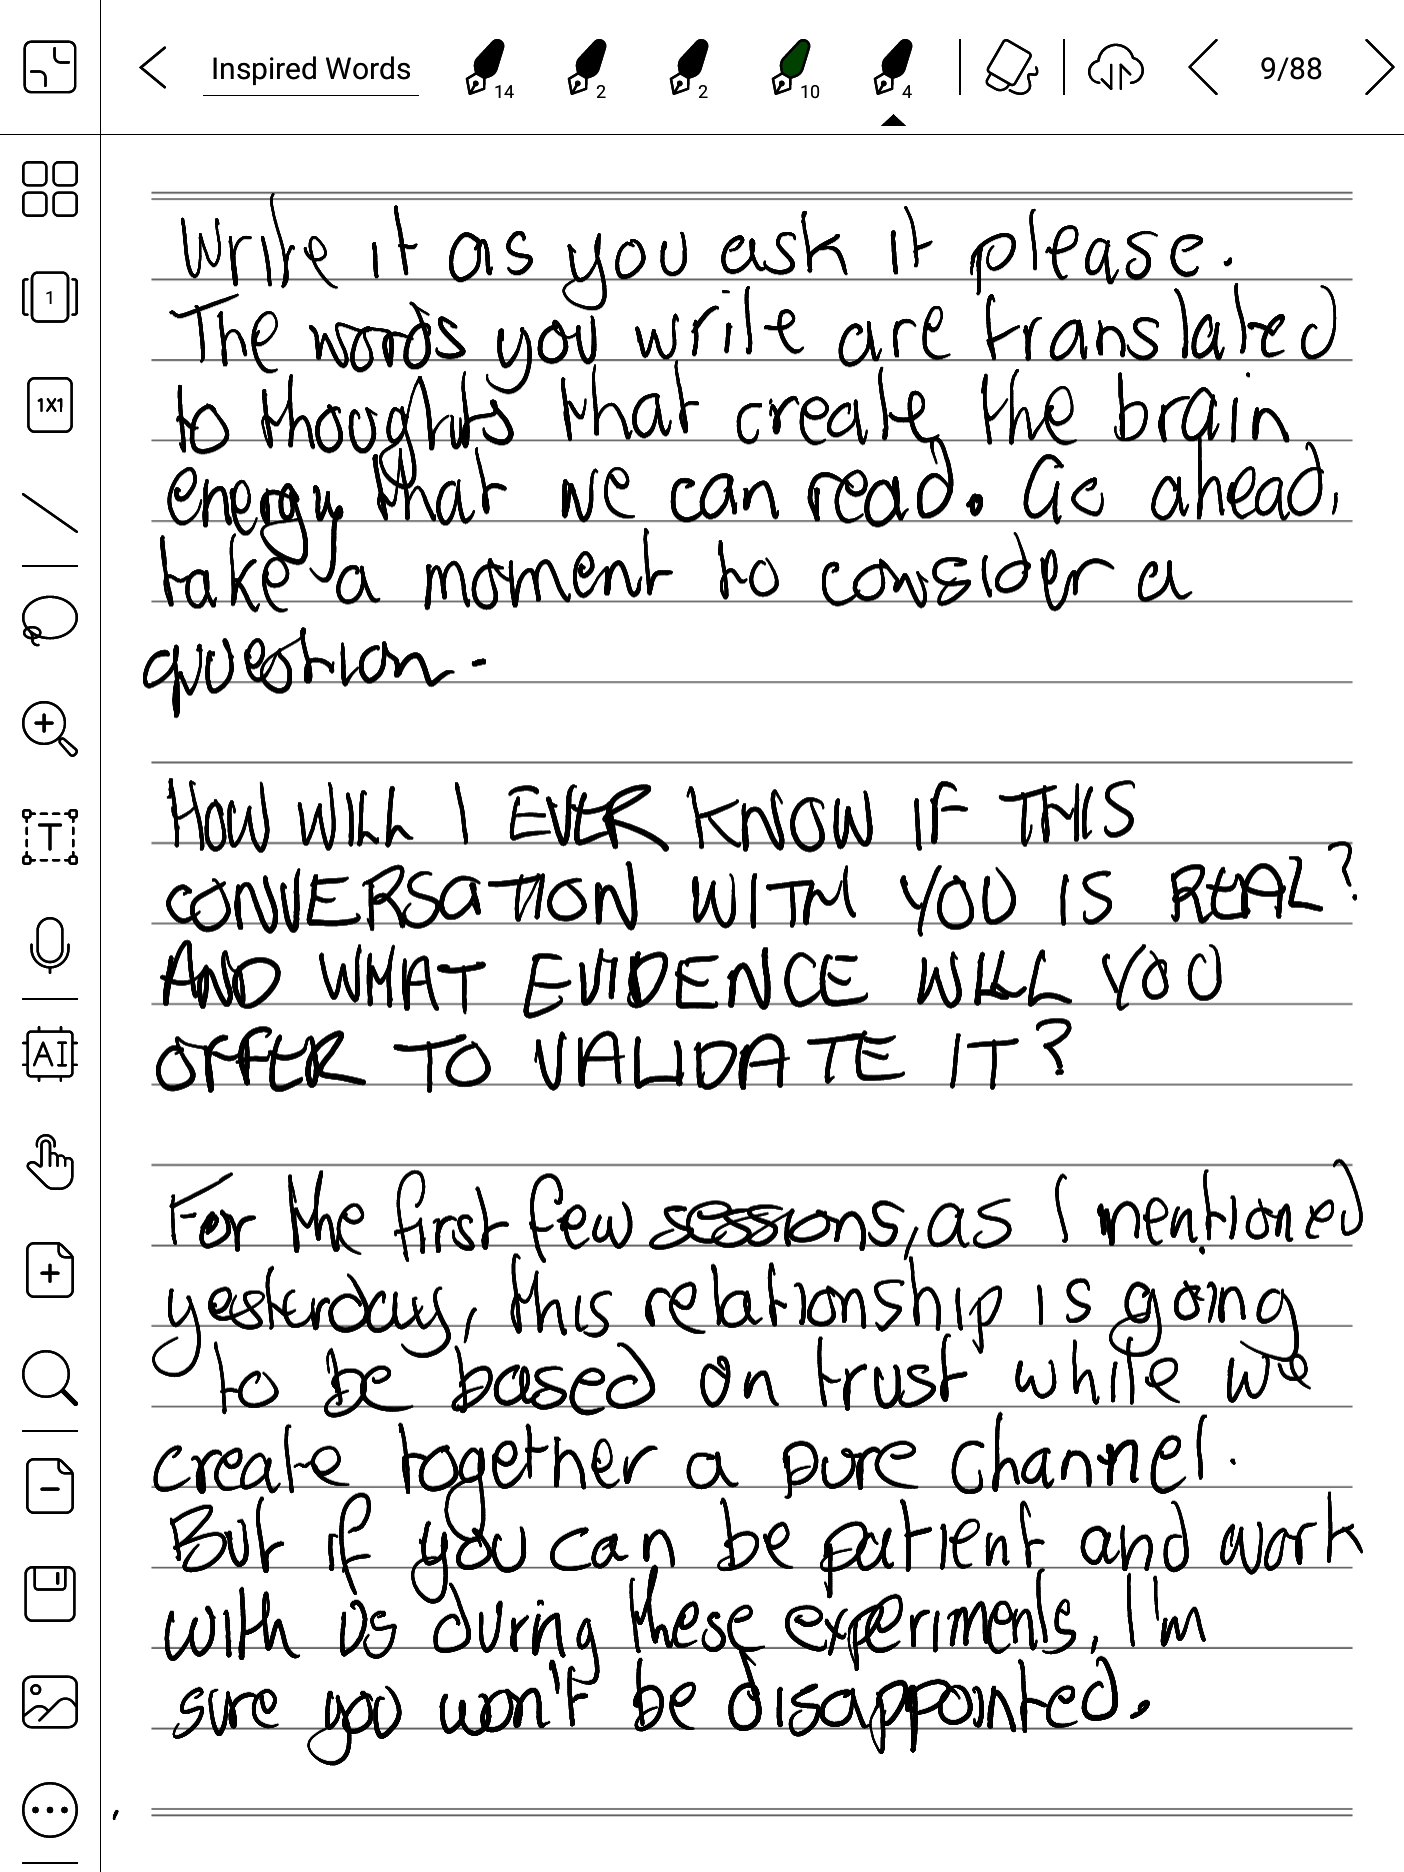 Inspired Words
14
2
2
10
4
9/88
1
1X1
T
AI
Write it as you ask it please.
The words you write are translated
to thoughts that create the brain
energy that we can read. Go ahead,
take a moment to consider a
question.
HOW WILL I EVER KNOW IF THIS
CONVERSATION WITH YOU IS REAL?
AND WHAT EVIDENCE WILL YOU
OFFER TO VALIDATE IT?
For the first few sessions, as I mentioned
yesterday, this relationship is going
to be based on trust while we
create together a pure channel.
But if you can be patient and work
with us during these experiments, I'm
sure you won't be disappointed.